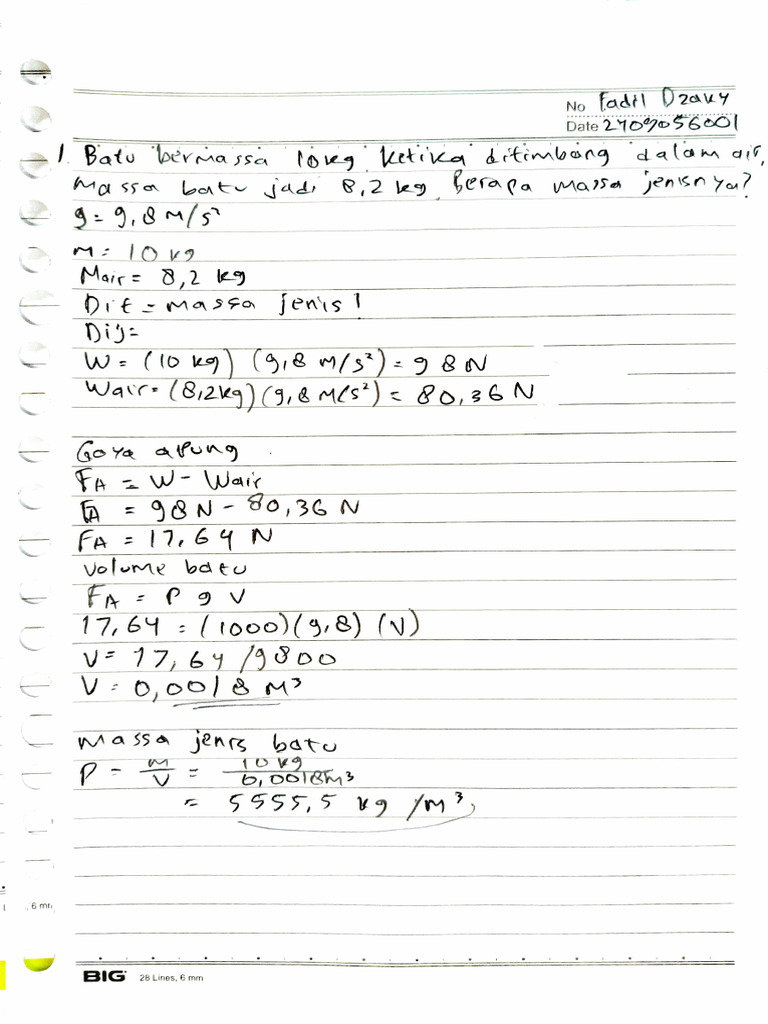 No Fadil Dzaky
Date 2409056001
1. Batu bermassa 10kg ketika ditimbang dalam air,
massa batu jadi 8,2 kg. Berapa massa jenisnya?
g = 9,8 M/s²
m = 10 kg
Mair = 8,2 kg
Dit = massa jenis!
Dij=
W = (10 kg) (9,8 M/s²) = 98N
Wair = (8,2kg)(9,8 M/s²) = 80,36 N
Gaya apung
FA = W - Wair
FA = 98N - 80,36 N
FA = 17,64 N
Volume batu
FA = P g V
17,64 = (1000)(9,8) (V)
V = 17,64 /9800
V = 0,0018 M³
Massa jenis batu
P = m/V = 10kg/0,0018M³
= 5555,5 kg/m³
6 mm
BIG 28 Lines, 6 mm